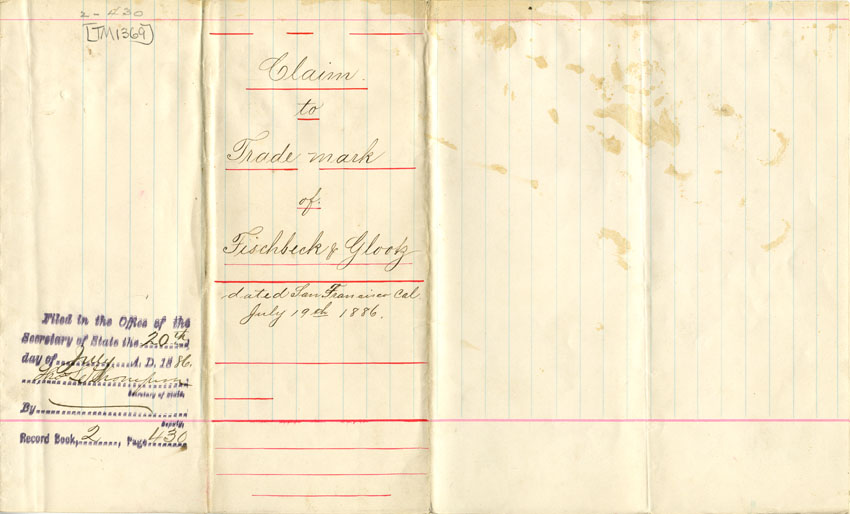 2-430
[TM1369]
Claim.
to
Trade mark
of
Fischbeck & Glootz
dated San Francisco Cal
July 19th 1886.
Filed in the Office of the
Secretary of State the 20th
day of July A. D. 1886.
Thos L Thompson
Secretary of State.
By
Deputy.
Record Book, 2, Page 430